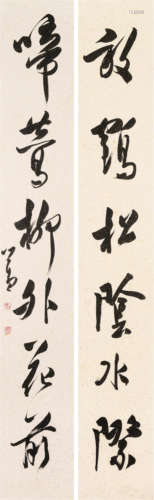 放鶴松陰水際
啼鶯柳外花前
心畬